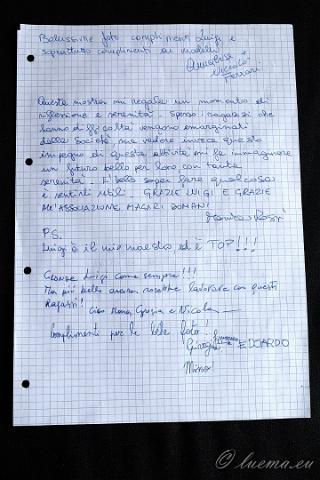 Bellissime foto complimenti Luigi e
soprattutto complimenti ai modelli
Annalisa e
Niccolò
Ferrari
Questa mostra mi regala un momento di
riflessione e serenità. Spesso i ragazzi che
hanno difficoltà vengono emarginati
dalla Società, ma vedere invece questo
impegno di questa attività mi fa immaginare
un futuro bello per loro, con tanta
serenità. È bello saper fare qualcosa
e sentirsi utili. GRAZIE LUIGI E GRAZIE
ALL'ASSOCIAZIONE MAGARI DOMANI
Monica Rossi
P.S.
Luigi è il mio maestro ed è TOP!!!
Grande Luigi come sempre!!!
Ma più bello ancora sarebbe lavorare con questi
Ragazzi! Ciao Maria Grazia e Nicola
Complimenti per le belle foto!
Giorgia EDOARDO
Mirco!
© luema.eu